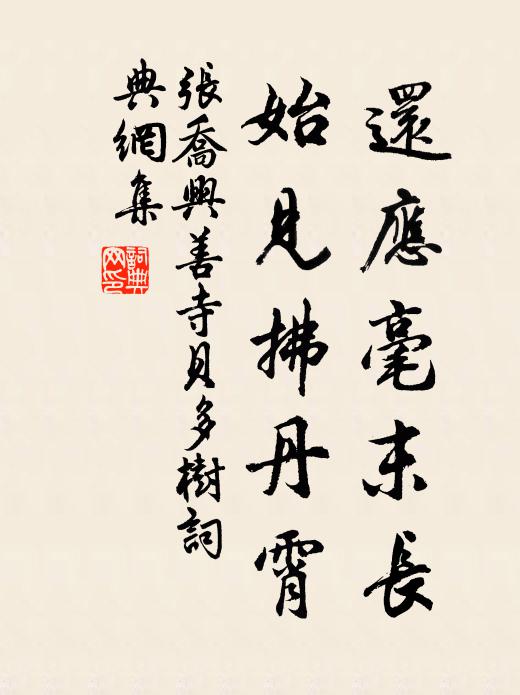 還應毫末長
始見拂丹霄
張喬興善寺貝多樹詞
典網集
詞典
网印